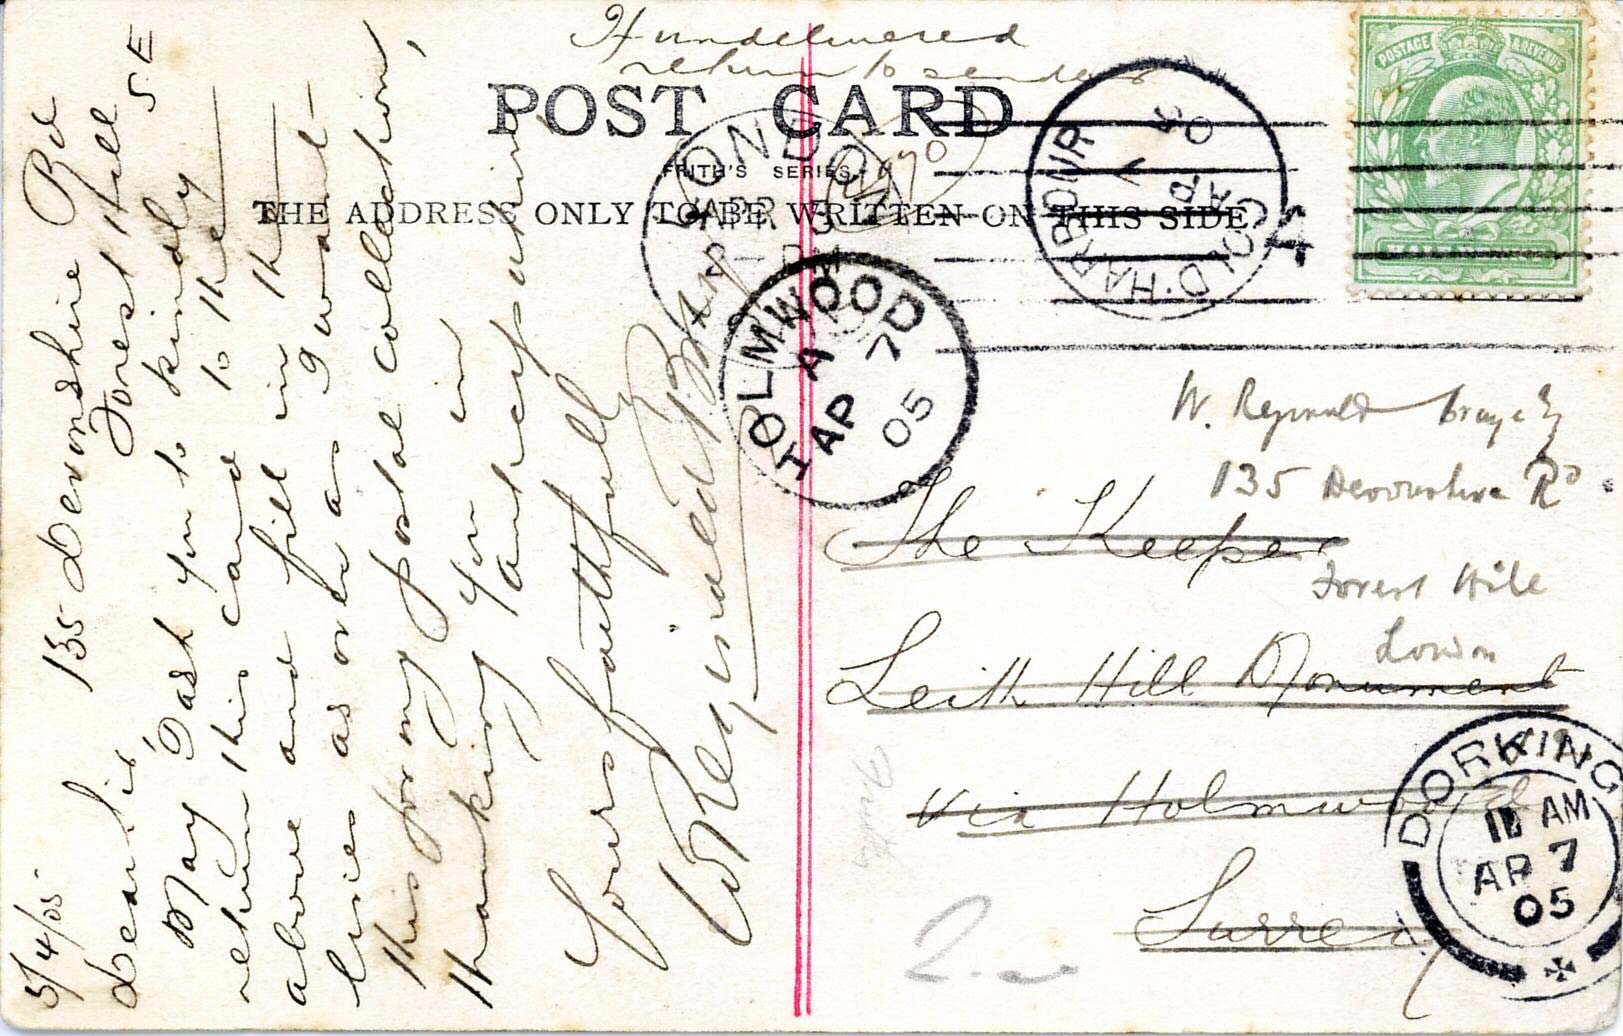 If undelivered
return to sender
POST CARD
FRITH'S SERIES.
THE ADDRESS ONLY TO BE WRITTEN ON THIS SIDE.
POSTAGE & REVENUE
LONDON
APR
COLD·HARBOUR
AP
05
HOLMWOOD
A
AP 7
05
DORKING
11 AM
AP 7
05
W. Reginald Bray Esq
135 Devonshire Rd
Forest Hill
London
The Keeper
Leith Hill Monument
Via Holmwood
Surrey
5/4/05
135 Devonshire Rd
Forest Hill
S E
Dear Sir
May I ask you to kindly
return this card to the
above and fill in the
lines as over as I want
this for my postal collection,
thanking you in
anticipation
Yours faithfully
W Reginald Bray